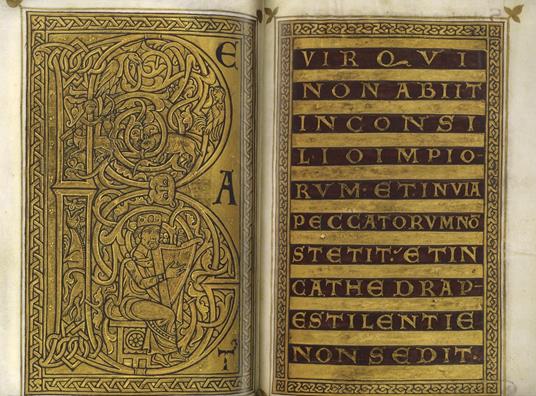 B
E
A
T
VIRQVI
NONABIIT
INCONSI
LIOIMPIO·
RVM·ETINVIA
PECCATORVMNŌ
STETIT·ETIN
CATHEDRAP-
ESTILENTIE
NONSEDIT·